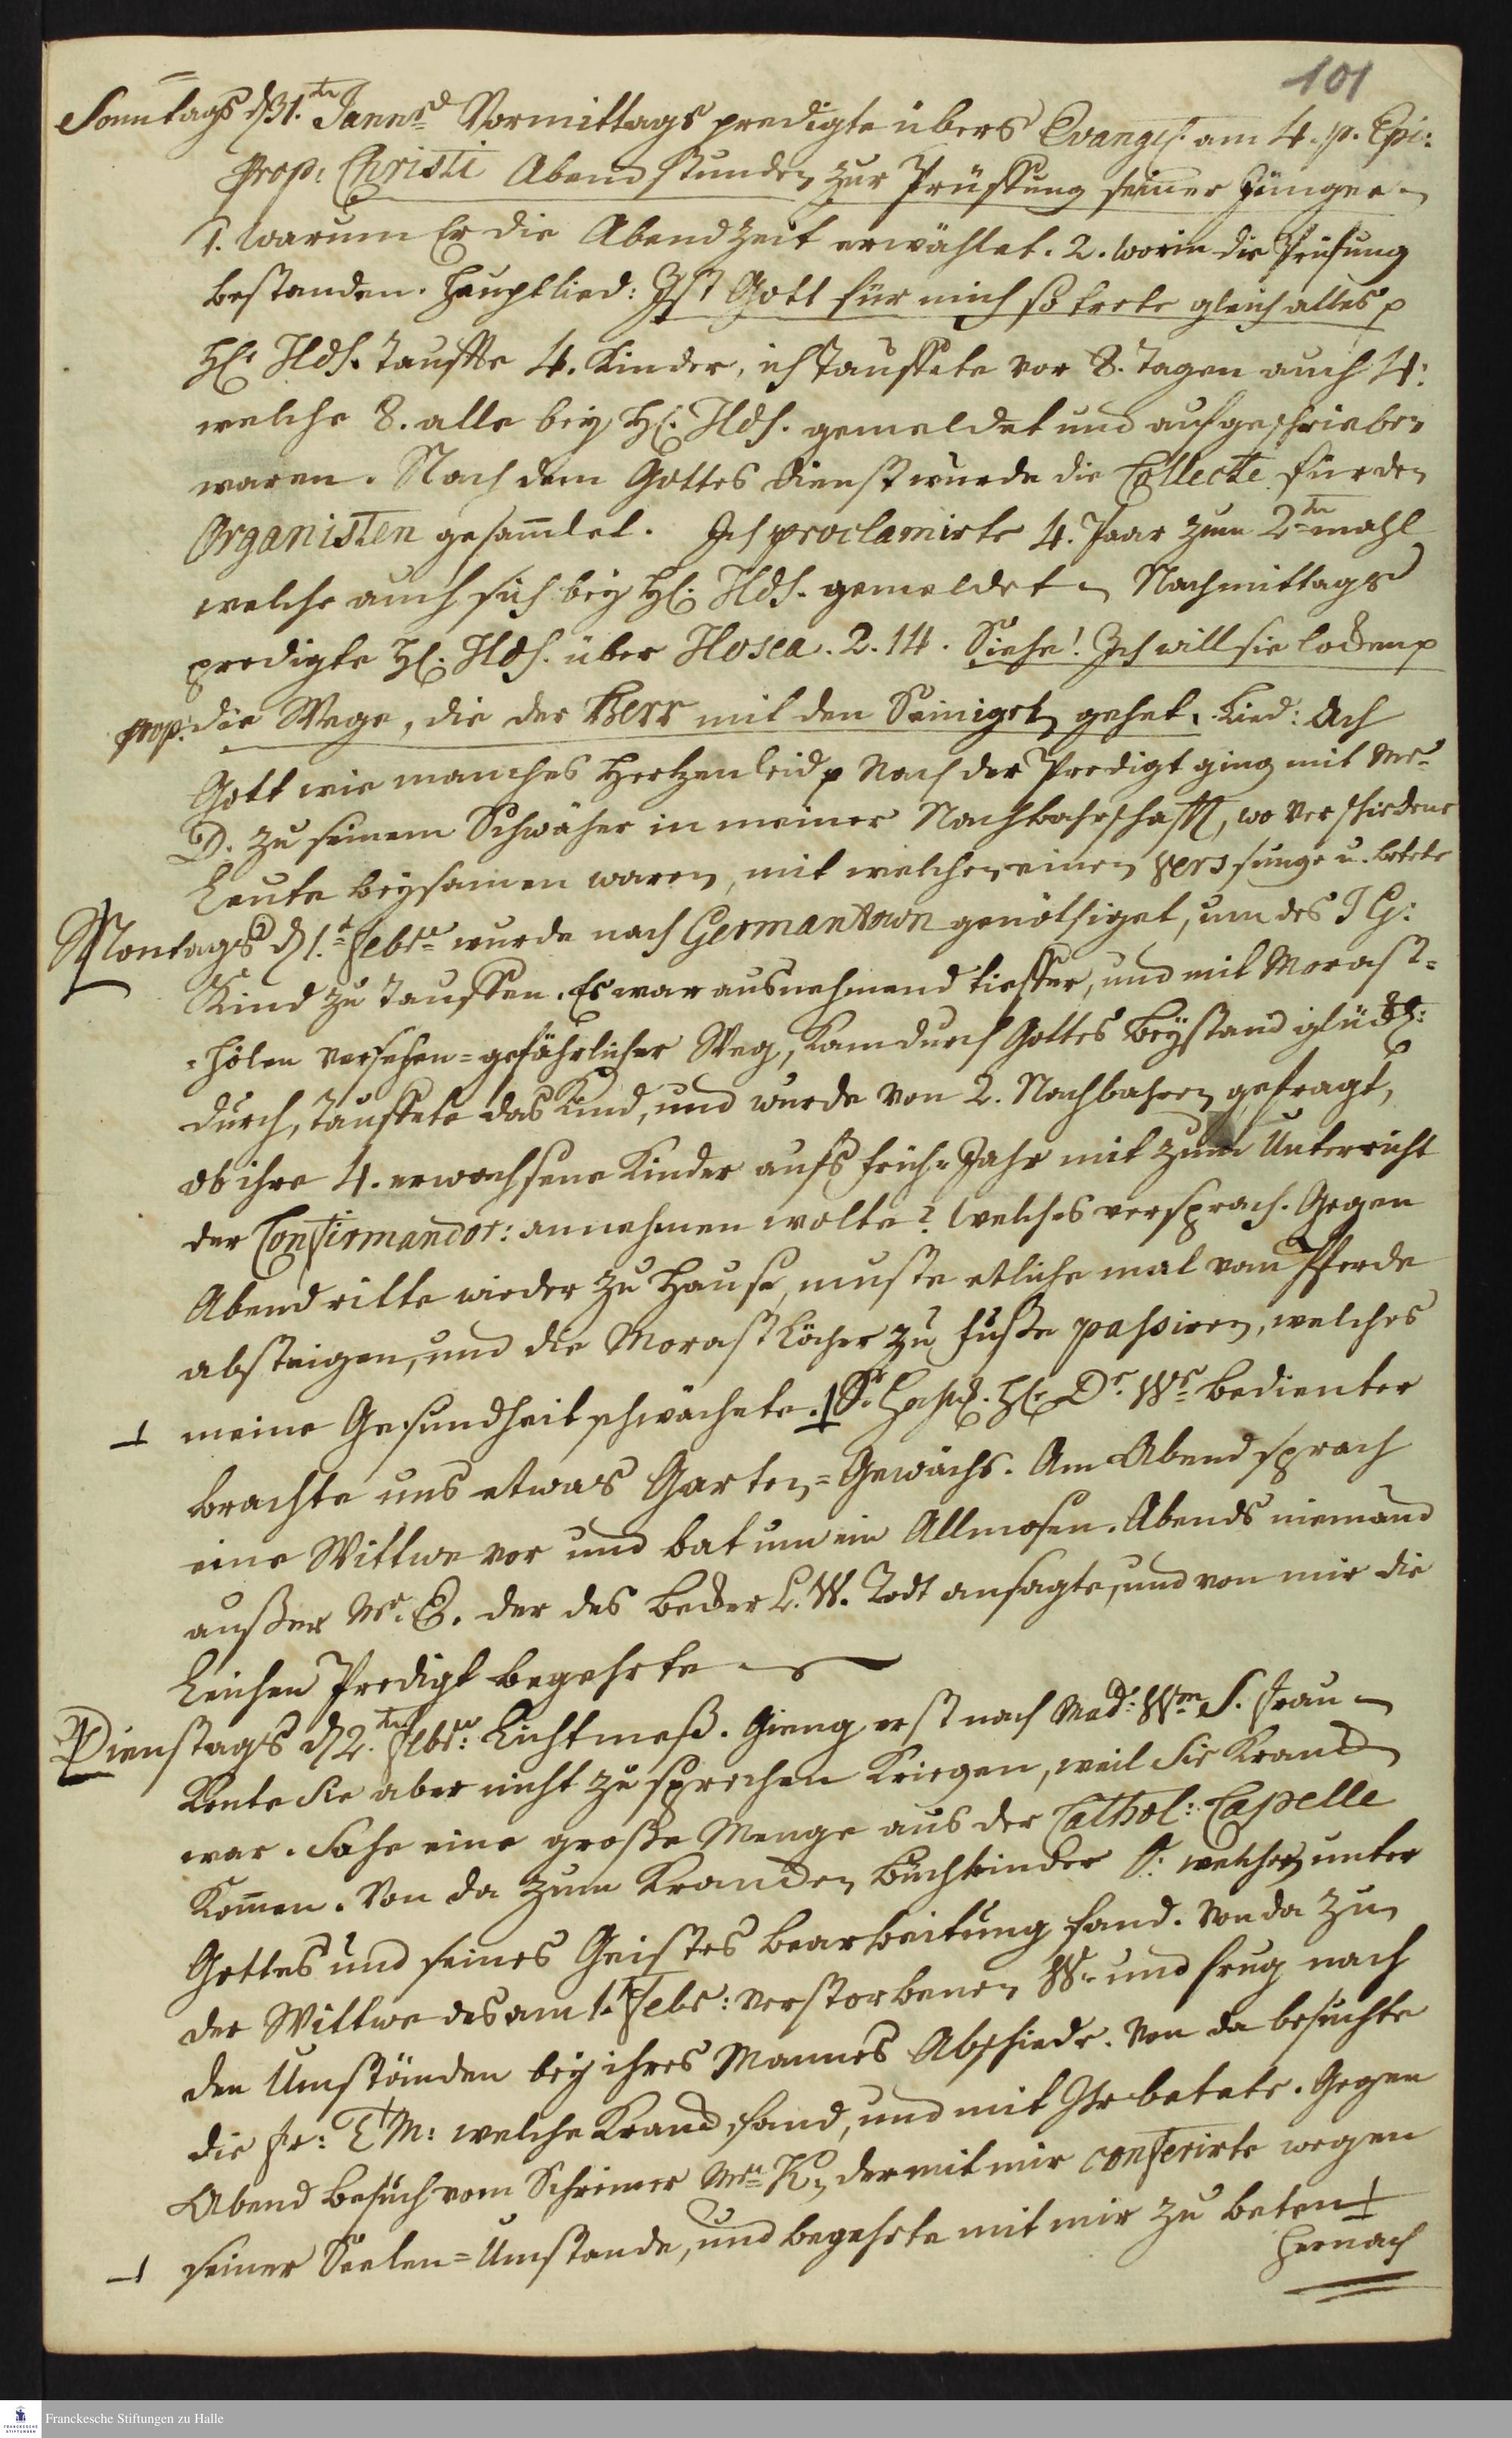 101
Sonntags d 31.ten Januar Vormittags predigte übers Evangel. am 4. p. Epi:
prop: Christi Abendstunden zur Prüffung seiner Jünger
1. warum Er die Abendzeit erwählet. 2. worin die Prüfung
bestanden. Hauptlied: Ist Gott für mich so trete gleich alles p
H. Hds. tauffte 4. Kinder, ich tauffete vor 8. Tagen auch 4:
welche 8. alle bey H. Hds. gemeldet und aufgeschrieben
waren. Nach dem Gottes dienst wurde die Collecte für den
Organisten gesam̄let. Ich proclamirte 4. Paar zum 2ten mahl
welche auch sich bey H. Hds. gemeldet Nachmittags
predigte H. Hds. über Hosea. 2. 14. Siehe! Ich will sie locken p
prop: die Wege, die der Herr mit den Seinigen gehet. Lied: Ach
Gott wie manches Hertzenleid p Nach der Predigt ging mit Mr
D. zu seinem Schwäher in meiner Nachbahrschafft, wo verschiedene
Leute beysam̄en waren, mit welchen einen vers sunge u. betete
Montags d 1.t Febr wurde nach Germantown genöthiget, um des J G:
Kind zu tauffen. Es war ausnehmend tieffer, und mit Morast=
=hölen versehen=gefährlicher Weg, kam durch Gottes Beystand glückl:
durch, tauffete das Kind, und wurde von 2. Nachbahren gefragt,
ob ihre 4. erwachsene Kinder aufs früh=Jahr mit zum Unterricht
der Confirmandor: annehmen wolte? welches versprach. Gegen
Abend ritte wieder zu Hause, muste etliche mal vom Pferde
absteigen, und die Morast Löcher zu fusse passiren, welches
meine Gesundheit schwächete. H. Dr. Wr Bedienter
brachte uns etwas Garten=Gewächs. Am Abend sprach
eine Wittwe vor und bat um ein Allmosen. Abends niemand
ausser Mr. E. der des Becker L. W. Todt ansagte, und von mir die
Leichen Predigt begehrte
Dienstags d 2.ten Febr: Lichtmess. Gieng erst nach Mad: Wm S. Frau
konte sie aber nicht zu sprechen kriegen, weil sie kranck
war. Sahe eine grosse Menge aus der Cathol: Capelle
kom̄en. Von da zum krancken Buchbinder S: welchen unter
Gottes und seines Geistes bearbeitung fand. Von da zu
der Wittwe des am 1.t Febr: verstorbenen W. und frug nach
den Umständen bey ihres Mannes Abschiede. Von da besuchte
die fr: T M: welche kranck fand, und mit Ihr betete. Gegen
Abend Besuch vom Schreiner Mr K, der mit mir conferirte wegen
seiner Seelen=Umstände, und begehrte mit mir zu beten
hernach
Franckesche Stiftungen zu Halle